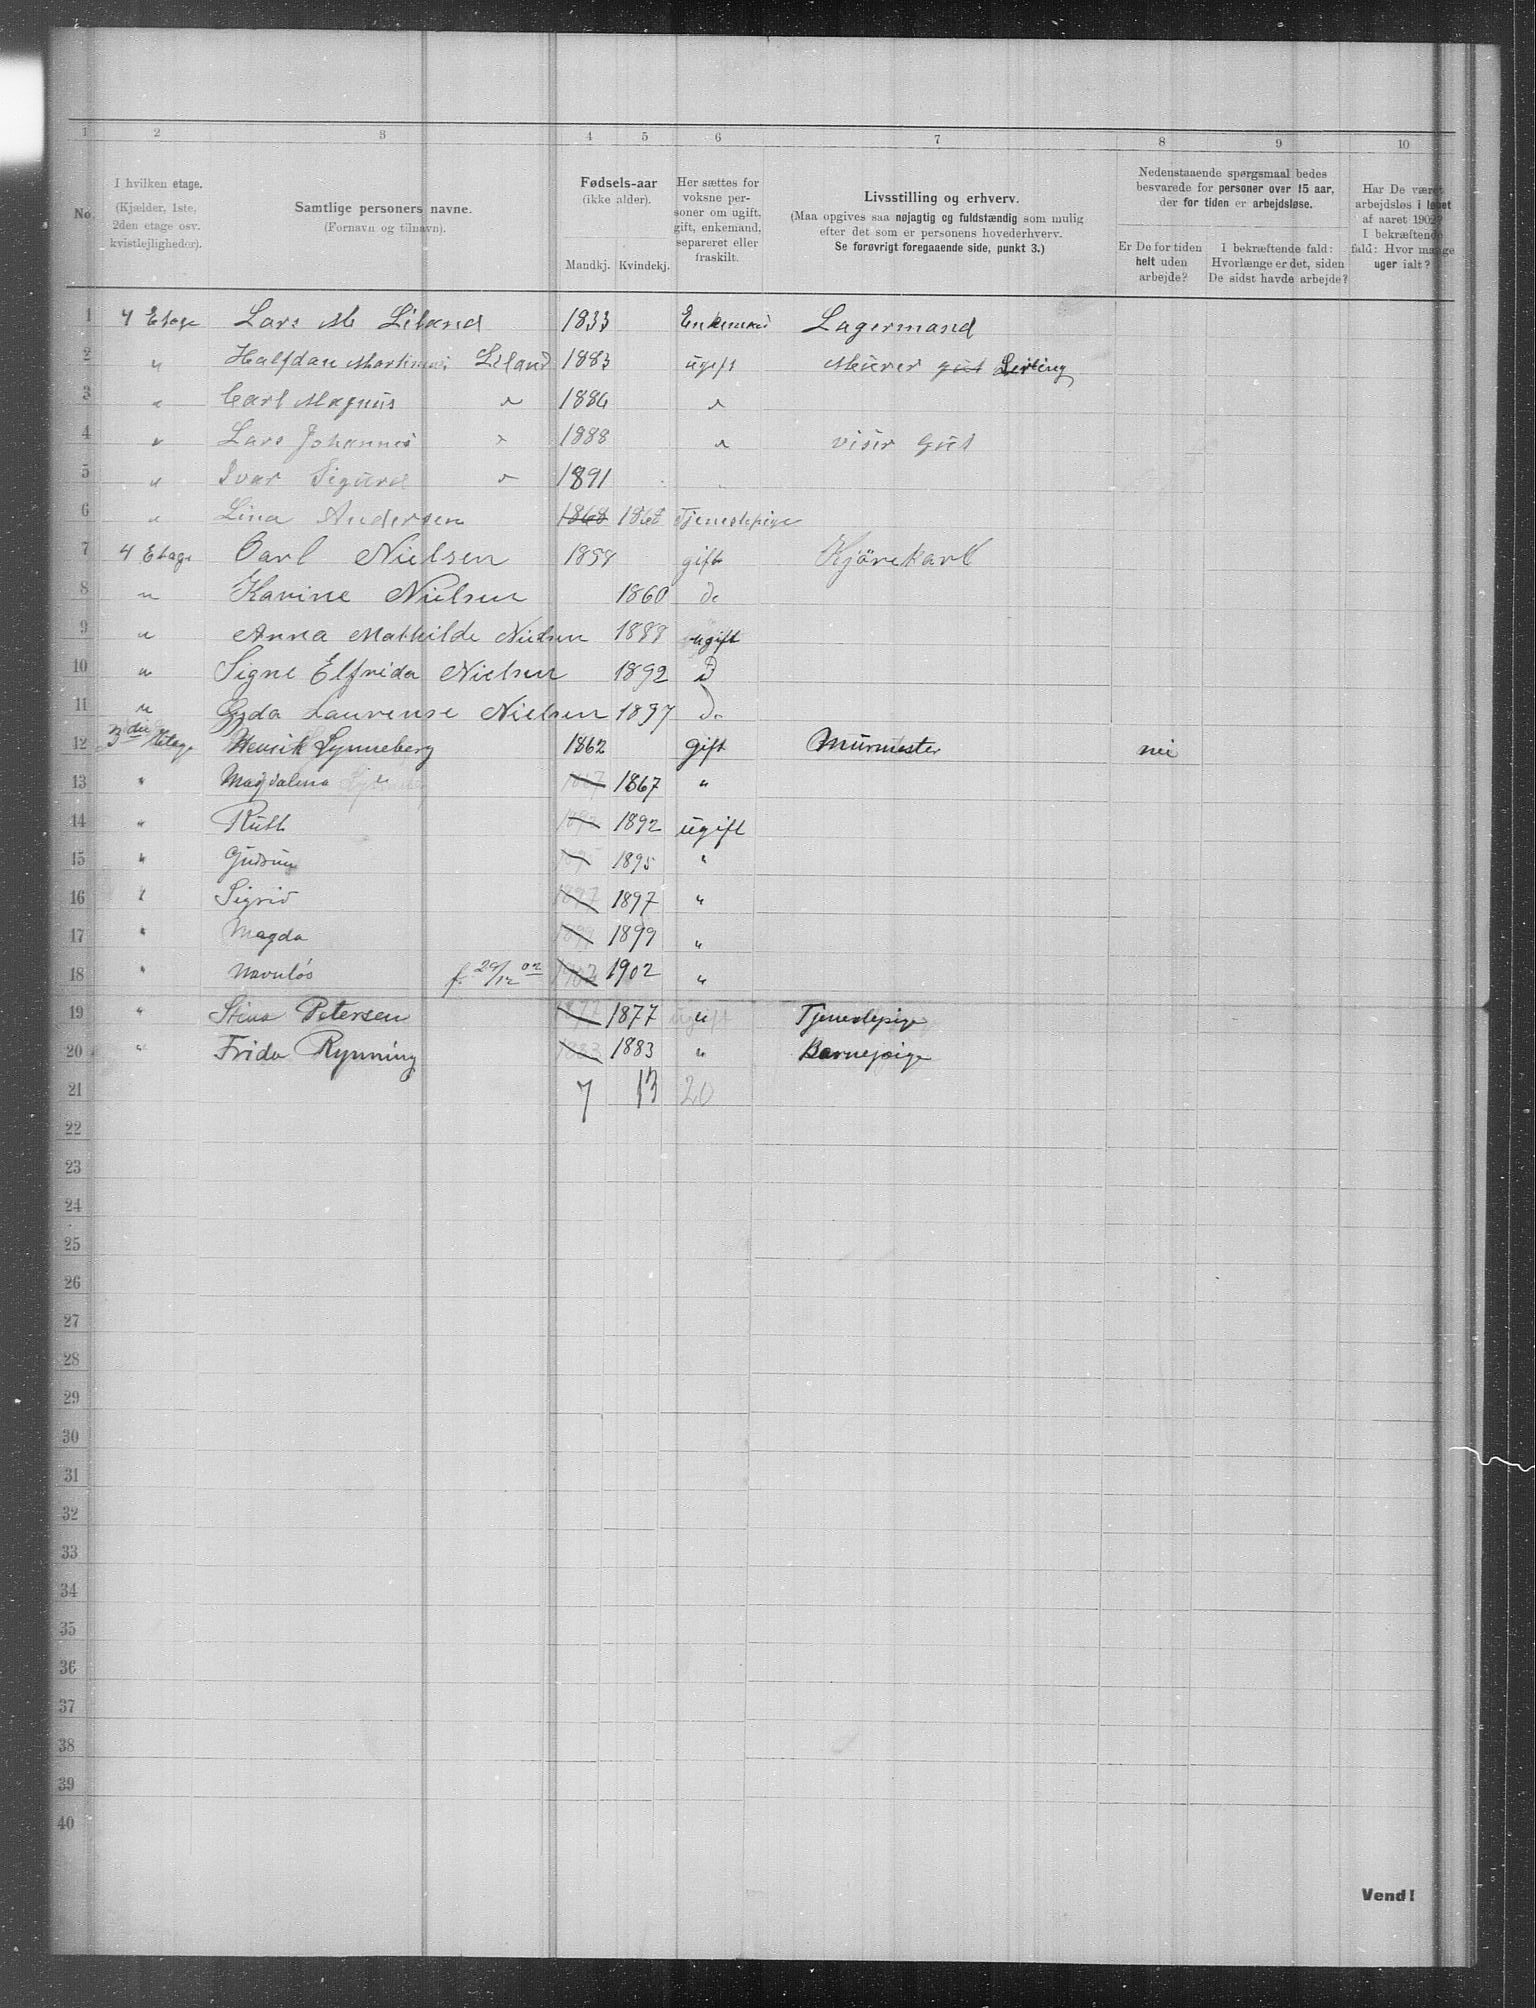 1 2 3 4 5 6 7 8 9 10
No. I hvilken etage. (Kjælder, 1ste, 2den etage osv. kvistleiligheder). Samtlige personers navne. (Fornavn og tilnavn). Fødsels-aar (ikke alder). Mandkj. Kvindekj. Her sættes for voksne personer om ugift, gift, enkemand, separeret eller fraskilt. Livsstilling og erhverv. (Maa opgives saa nøiagtig og fuldstændig som mulig efter det som er personens hovederhverv. Se forøvrigt foregaaende side, punkt 3.) Nedenstaaende spørgsmaal bedes besvarede for personer over 15 aar, der for tiden er arbejdsløse. Er De for tiden helt uden arbejde? I bekræftende fald: Hvorlænge er det, siden De sidst havde arbejde? Har De været arbejdsløs i løbet af aaret 1902? I bekræftende fald: Hvor mange uger ialt?
1 4 Etage Lars M Liland 1833 Enkemand Lagermand
2 " Halfdan Martinus Liland 1883 ugift Murer gut Lerling
3 " Carl Magnus " 1886 "
4 " Lars Johannes " 1888 " visir gut
5 " Ivar Sigurd " 1891
6 " Lina Andersen 1868 1868 Tjenestepige
7 4 Etage Carl Nielsen 1858 gift Kjörekarl
8 " Karine Nielsen 1860 do
9 " Anna Mathilde Nielsen 1888 ugift
10 " Signe Elfrida Nielsen 1892 D
11 " Gyda Laurense Nielsen 1897 Do
12 3die Etage Henrik Lynneberg 1862 Gift Murmester nei
13 " Magdalena " 1867 1867 "
14 " Ruth 1892 1892 ugift
15 " Gudrun 1895 1895 "
16 " Sigrid 1897 1897 "
17 " Magda 1899 1899 "
18 " Navnløs f. 29/12 02 1902 1902 "
19 " Stina Petersen 1877 1877 ugift " Tjenestepige
20 " Frida Rynning 1883 1883 " Barnepige
21 7 13 20
22
23
24
25
26
27
28
29
30
31
32
33
34
35
36
37
38
39
40
Vend!